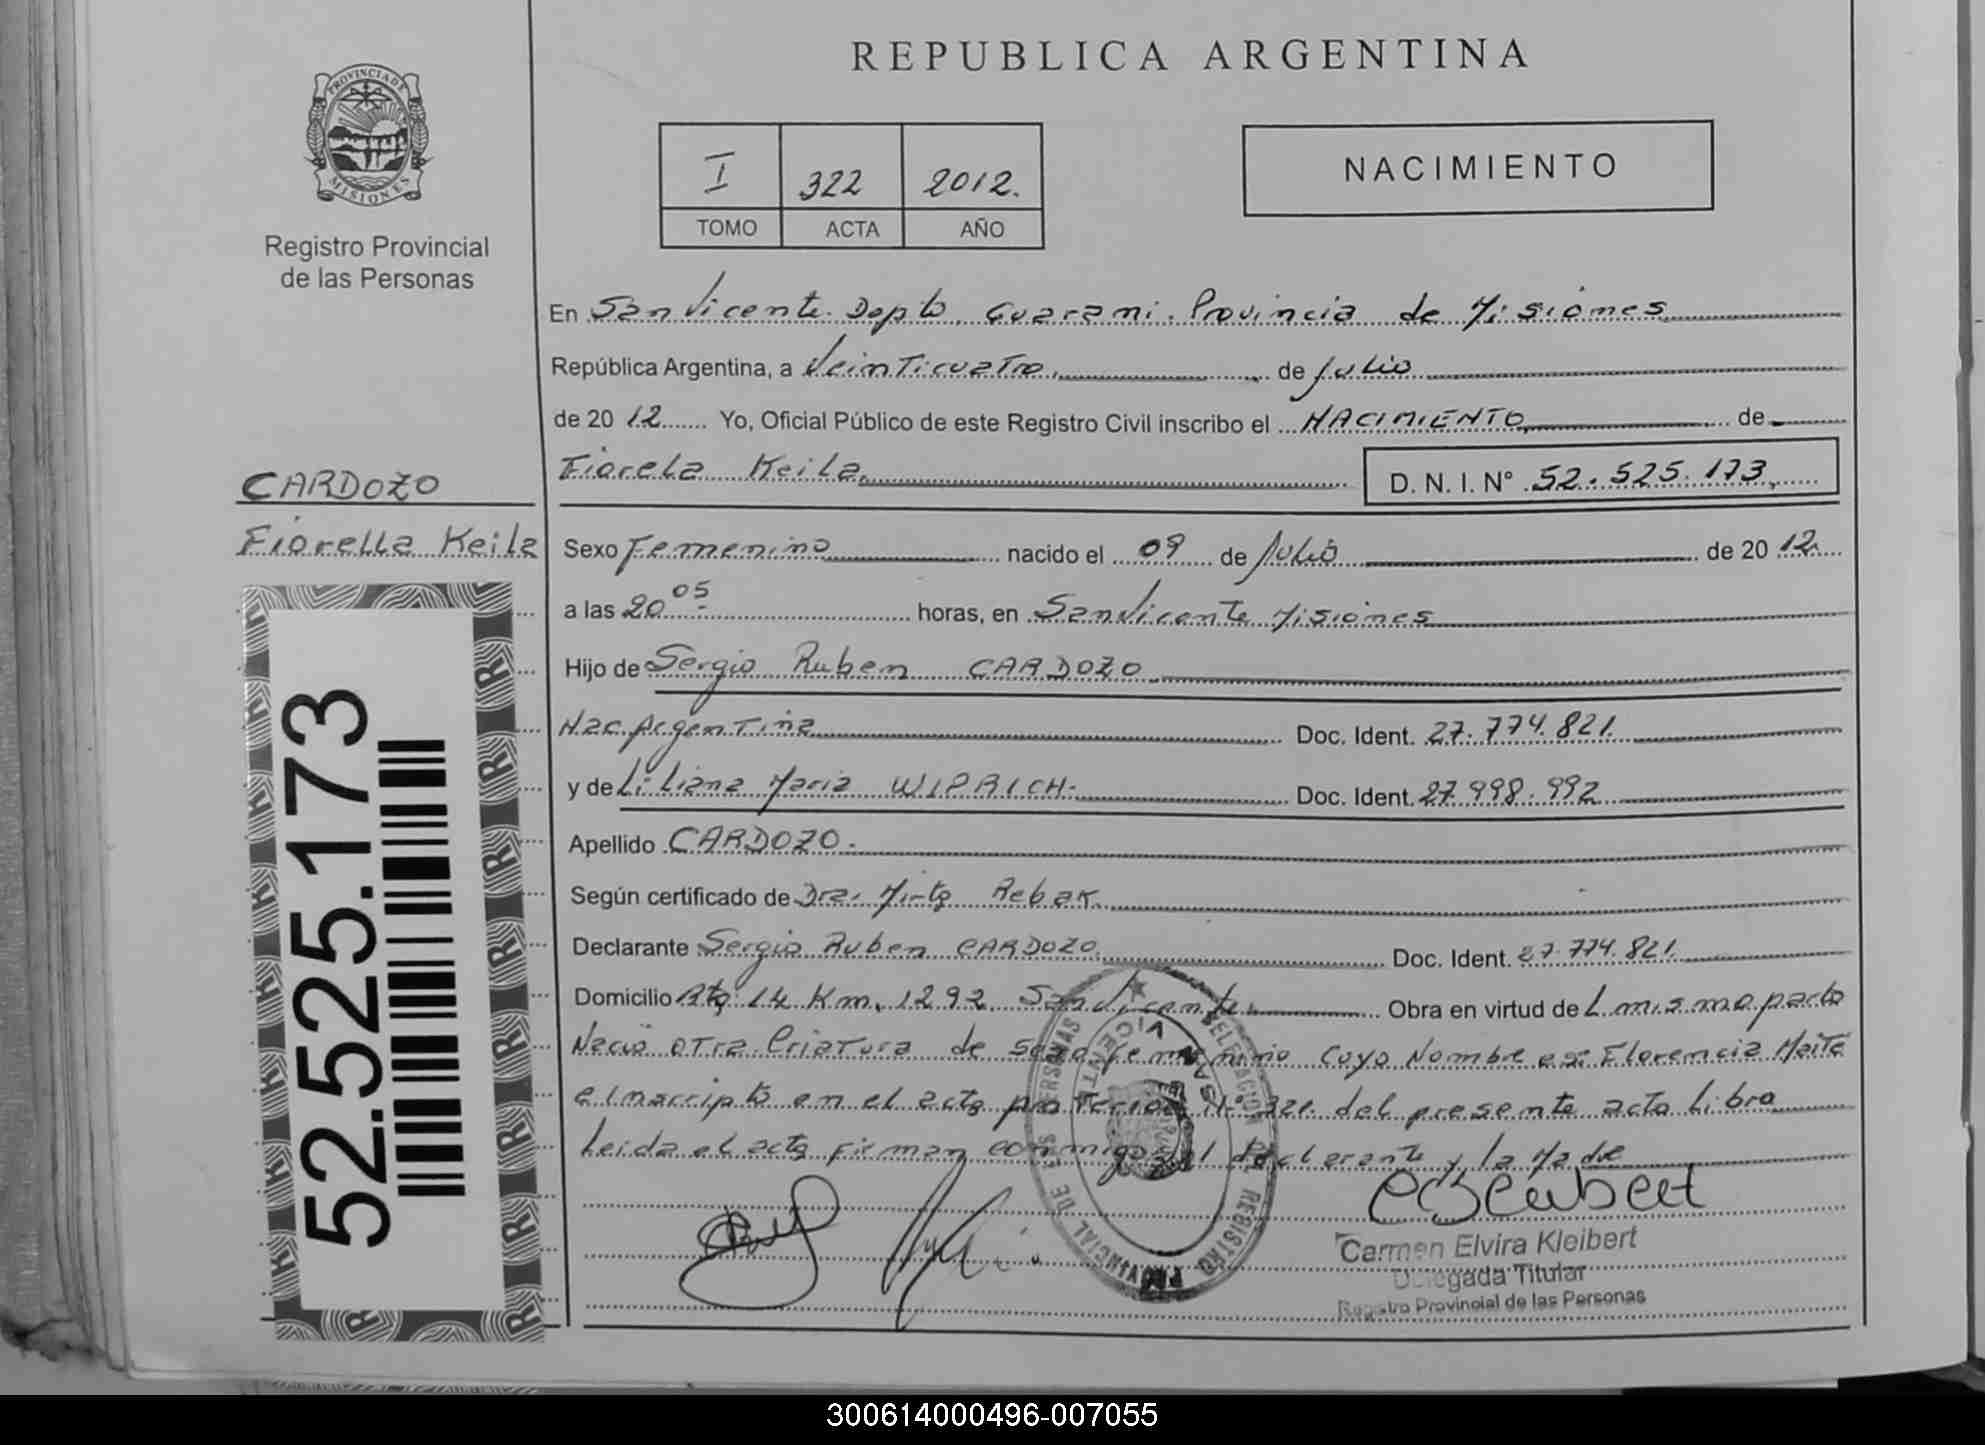 REPUBLICA ARGENTINA
PROVINCIA DE
MISIONES
Registro Provincial
de las Personas
I 322 2012.
TOMO ACTA AÑO
NACIMIENTO
En San Vicente. Dapto. Guarani. Provincia de Misiones
República Argentina, a Veinticuatro de Julio
de 2012 Yo, Oficial Público de este Registro Civil inscribo el NACIMIENTO, de
Fiorela Keila D. N. I. N° 52.525.173
CARDOZO
Fiorella Keila
Sexo Femenino nacido el 09 de Julio de 2012
a las 20 05 horas, en San Vicente Misiones
Hijo de Sergio Ruben CARDOZO
Nac. Argentina Doc. Ident. 27.774.821.
y de Liliana Maria WIPRICH. Doc. Ident. 27.998.992
Apellido CARDOZO.
Según certificado de Dra. Mirta Rebak.
Declarante Sergio Ruben CARDOZO Doc. Ident. 27.774.821.
Domicilio Rta 14 Km. 1292. San Vicente Obra en virtud de L mismo parto
Nacio otra Criatura de sexo femenino Cuyo Nombre es: Florencia Maite
e Inscripto en el acta anterior N° 321. del presente acto Libro
Leida el acta firman conmigo el declarante y la Madre
52.525.173
REGISTRO PROVINCIAL DE LAS PERSONAS
DELEGACION
SAN VICENTE
Carmen Elvira Kleibert
Delegada Titular
Registro Provincial de las Personas
300614000496-007055